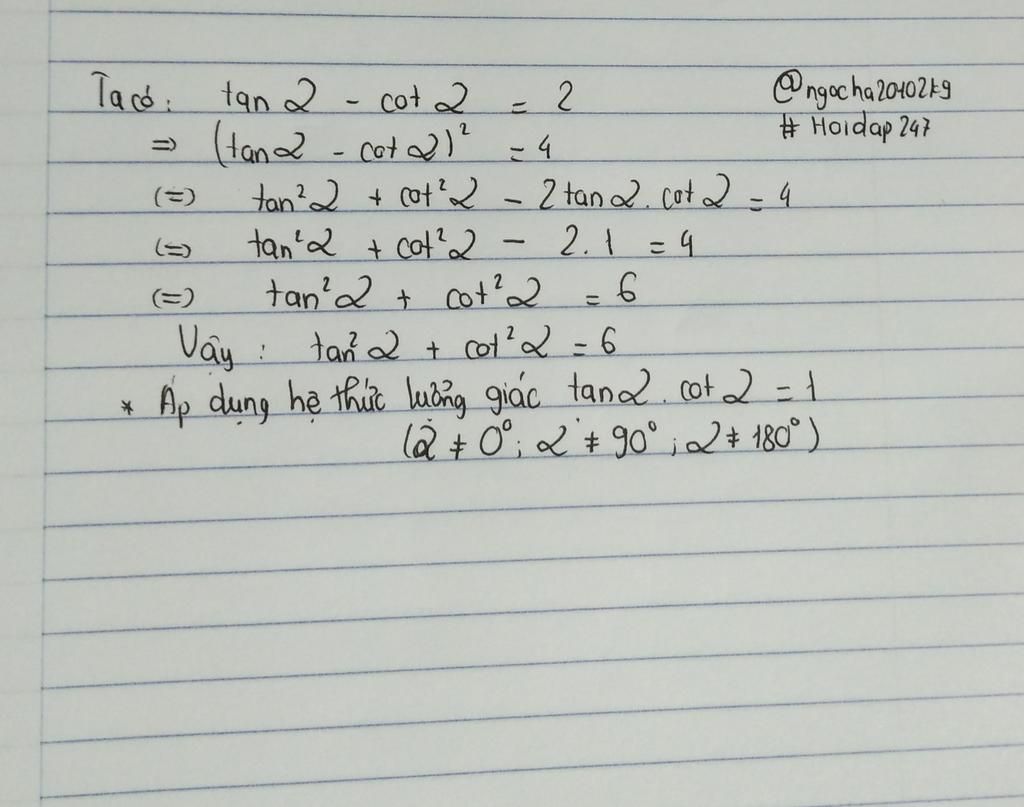 Ta có: tan α - cot α = 2
@ngocha20402k9
# Hoidap247
⇒ (tan α - cot α)² = 4
(=) tan²α + cot²α - 2tan α. cot α = 4
(=) tan²α + cot²α - 2.1 = 4
(=) tan²α + cot²α = 6
Vậy: tan²α + cot²α = 6
* Áp dụng hệ thức lượng giác tan α. cot α = 1
(α ≠ 0°; α ≠ 90°; α ≠ 180°)